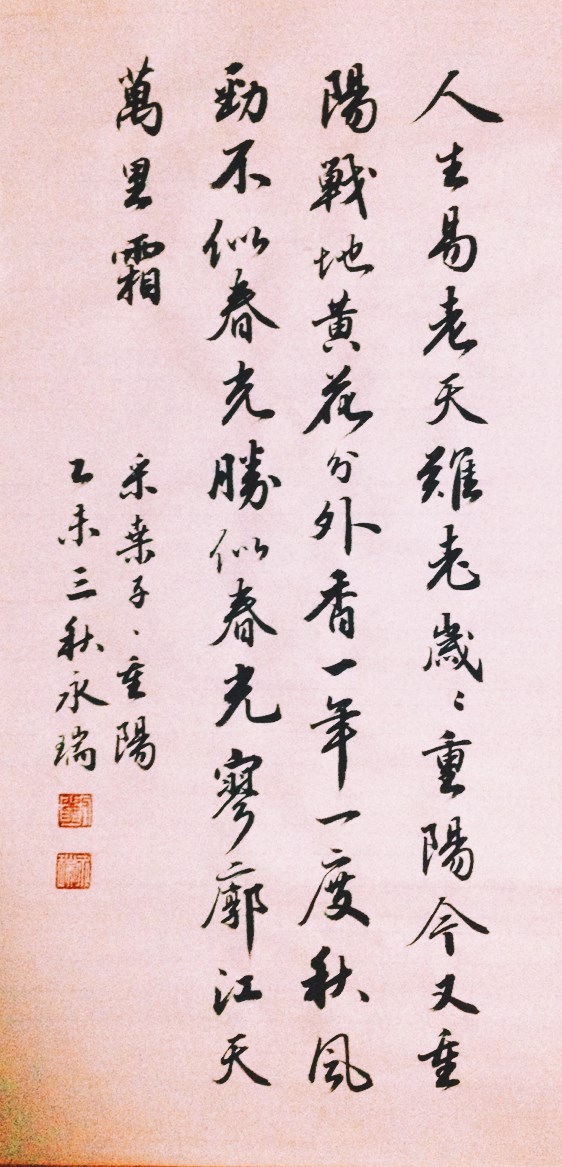 人生易老天難老歲〻重陽今又重
陽戰地黃花分外香一年一度秋風
勁不似春光勝似春光寥廓江天
萬里霜
采桑子、重陽
乙未三秋永瑞